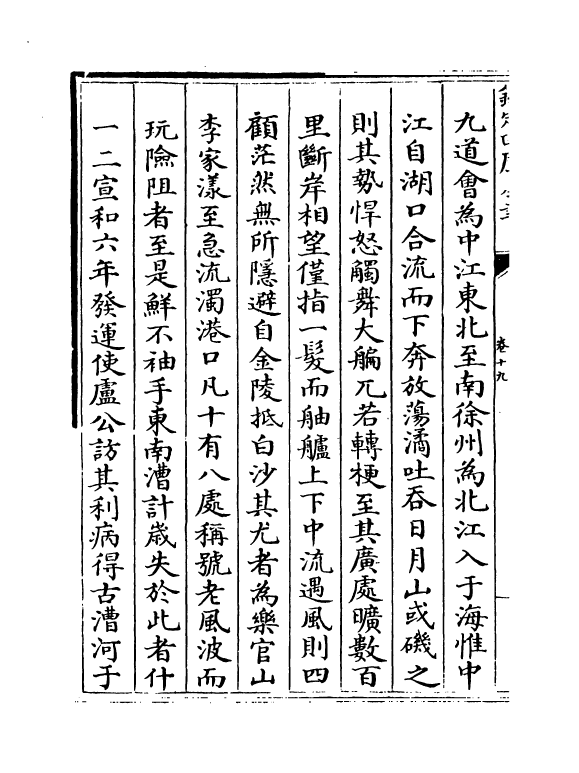 九道會為中江東北至南徐州為北江入于海惟中
江自湖口合流而下奔放蕩潏吐吞日月山或磯之
則其勢悍怒觸舞大艑兀若轉梗至其廣處曠數百
里斷岸相望僅指一髮而舳艫上下中流遇風則四
顧茫然無所隱避自金陵抵白沙其尤者為樂官山
李家漾至急流濁港口凡十有八處稱號老風波而
玩險阻者至是鮮不袖手東南漕計嵗失於此者什
一二宣和六年發運使盧公訪其利病得古漕河于
卷十九